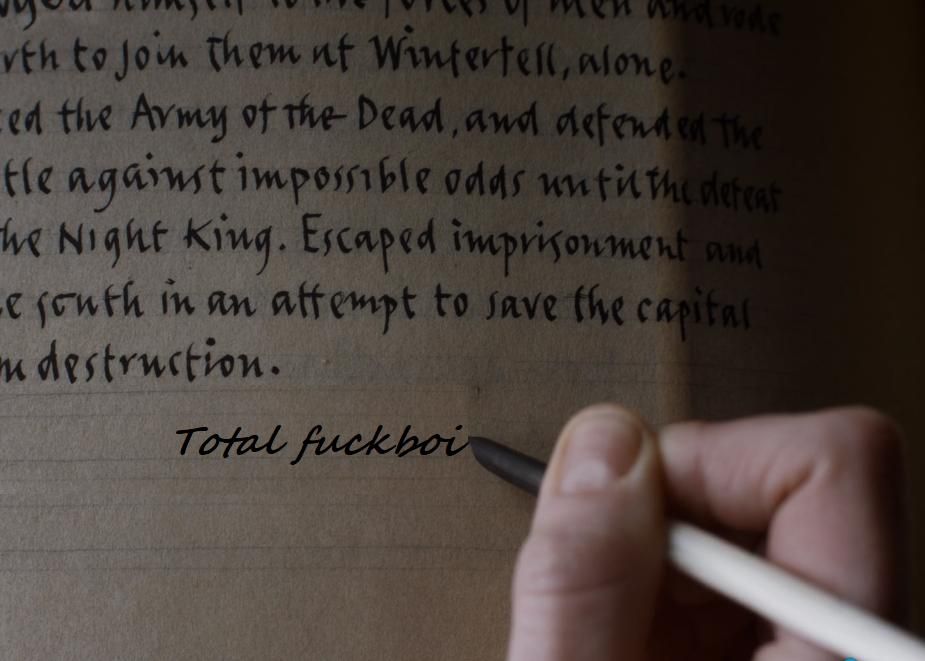 himself to the forces of men and rode
rth to join them at Winterfell, alone.
ced the Army of the Dead, and defended the
tle against impossible odds until the defeat
he Night King. Escaped imprisonment and
e south in an attempt to save the capital
m destruction.
Total fuckboi